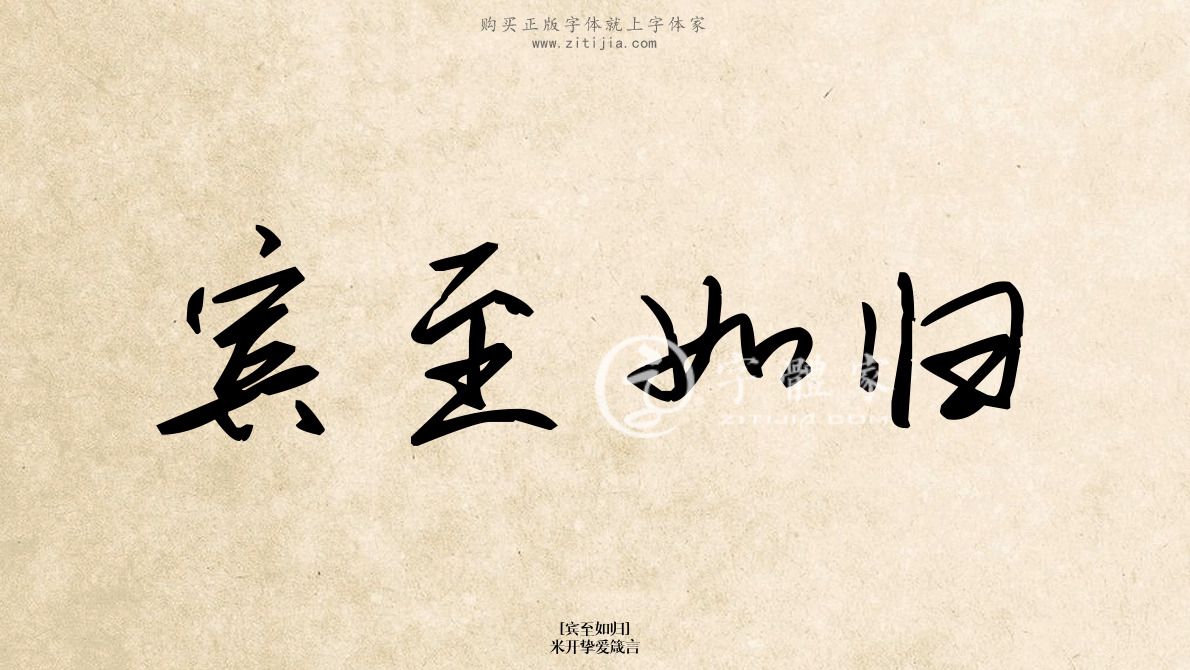 购买正版字体就上字体家
www.zitijia.com
宾至如归
字體家
ZITIJIA.COM
[宾至如归]
米开挚爱箴言